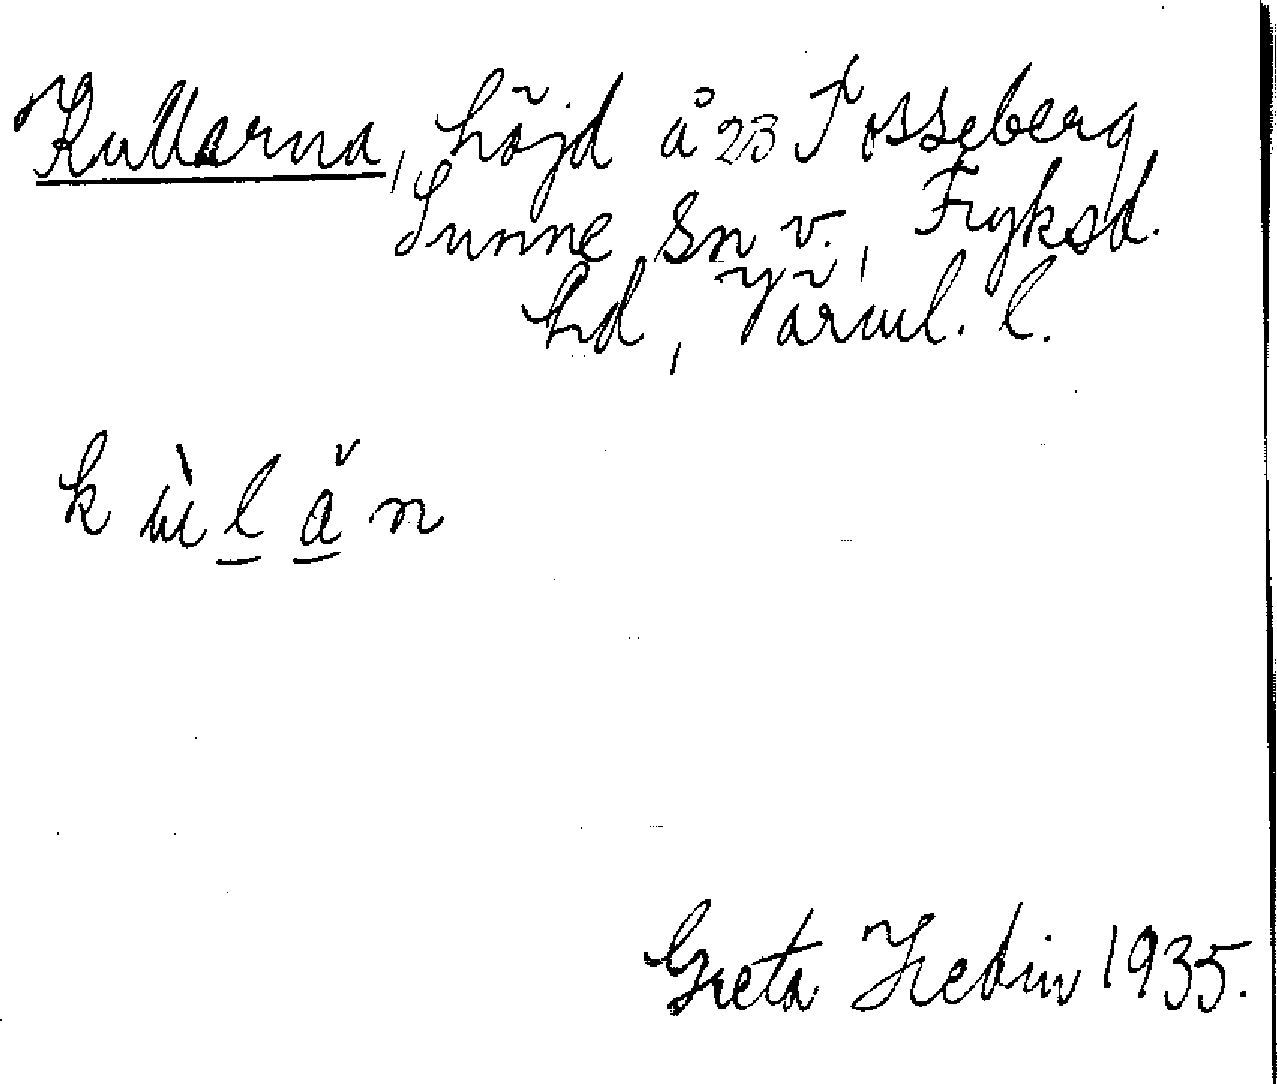 Kullarna, höjd å 23 Tosseberg
Sunne Sn v., Fryksd.
hd, Värml. l.
k ù l ǎ n
Greta Hedin 1935.